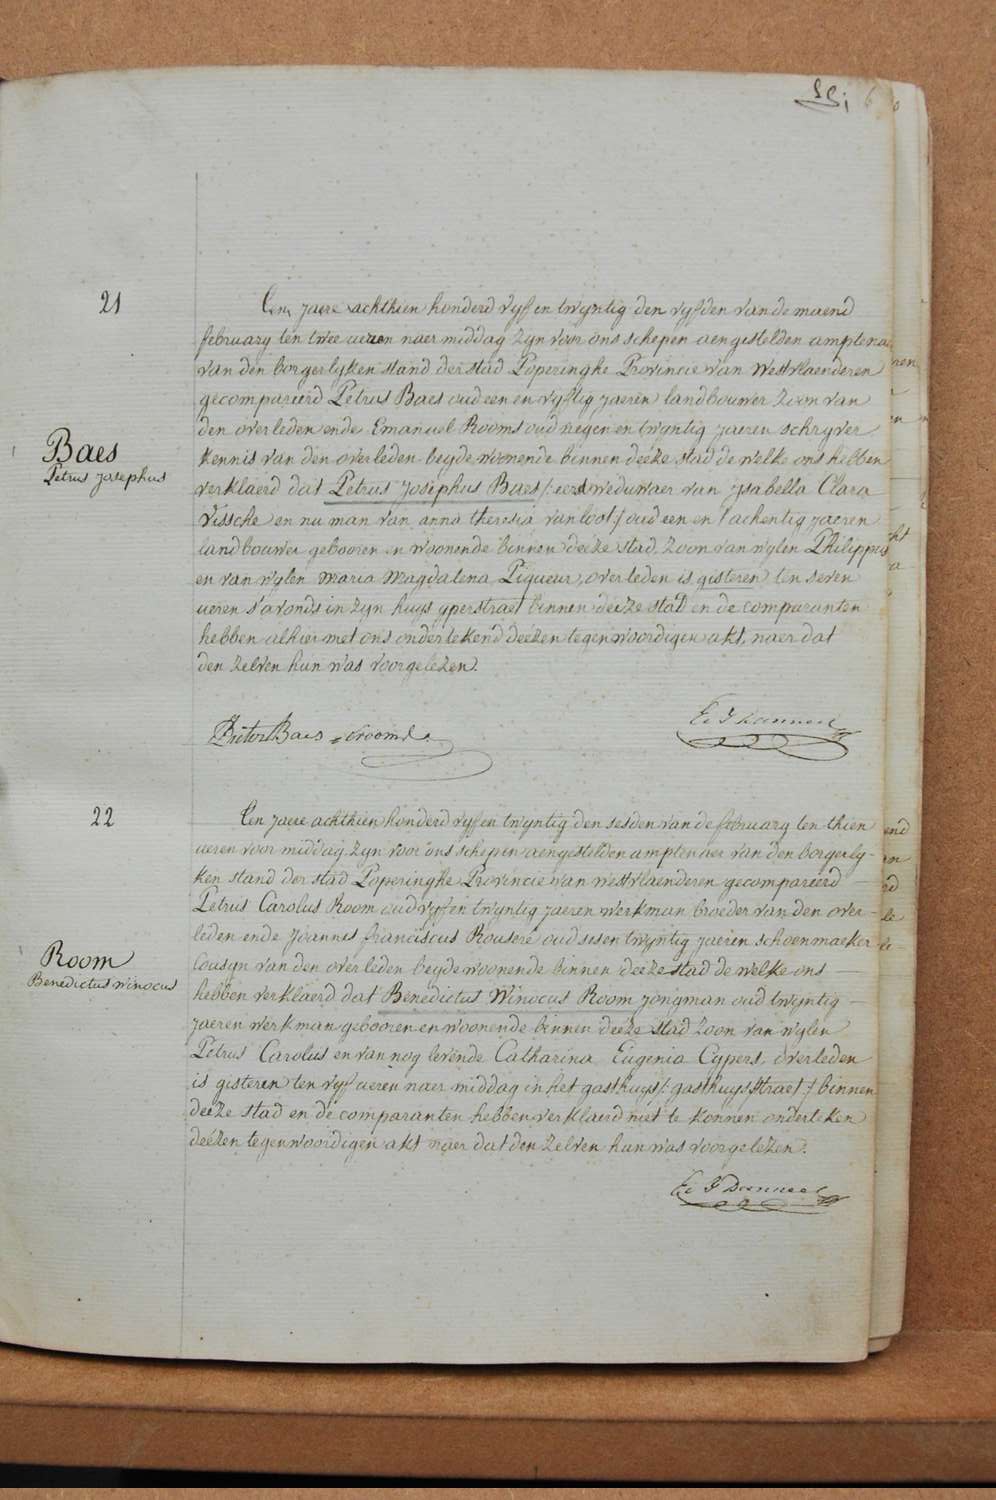 21
Een jaere achthien honderd vyf en twyntig den vyfden van de maend
february ten twee ueren naer middag zyn voor ons schepen aengestelden amptenaer
van den borgerlyken stand der stad Poperinghe Provincie van Westvlaenderen
gecompareerd Petrus Baes oud een en vyftig jaeren landbouwer zoon van
den overleden ende Emanuel Rooms oud negen en twyntig jaeren schryver
Baes
Petrus Josephus
kennis van den overleden beyde woonende binnen deeze stad de welke ons hebben
verklaerd dat Petrus Josephus Baes /: eerst weduwaer van Ysabella Clara
Vissche en nu man van anna theresia vanloot :/ oud een en tachentig jaeren
landbouwer gebooren en woonende binnen deeze stad, zoon van wylen Philippus
en van wylen Maria Magdalena Piqueur, overleden is gisteren ten seven
ueren s'avonds in zyn huys yperstraet binnen deeze stad en de comparanten
hebben alhier met ons onderteekend deezen tegenwoordigen akt, naer dat
den zelven hun was voorgelezen.
Pieter Baes
22
Een jaere achthien honderd vyf en twyntig den sesden van de february ten thien
ueren voor middag zyn voor ons schepen aengestelden amptenaer van den borgerly-
ken stand der stad Poperinghe Provincie van Westvlaenderen gecompareerd
Petrus Carolus Room oud vyf en twyntig jaeren werkman broeder van den over-
leden ende Joannes franciscus Rouseré oud ses en twyntig jaeren schoenmaeker
Room
Benedictus Winocus
Cousyn van den overleden beyde woonende binnen deeze stad de welke ons
hebben verklaerd dat Benedictus Winocus Room jongman oud twyntig
jaeren werkman gebooren en woonende binnen deeze stad zoon van wylen
Petrus Carolus en van nog levende Catharina Eugenia Cypers, overleden
is gisteren ten vyf ueren naer middag in het gasthuys /: gasthuysstraet :/ binnen
deeze stad en de comparanten hebben verklaerd niet te konnen onderteken
deezen tegenwoordigen akt naer dat den zelven hun was voorgelezen.